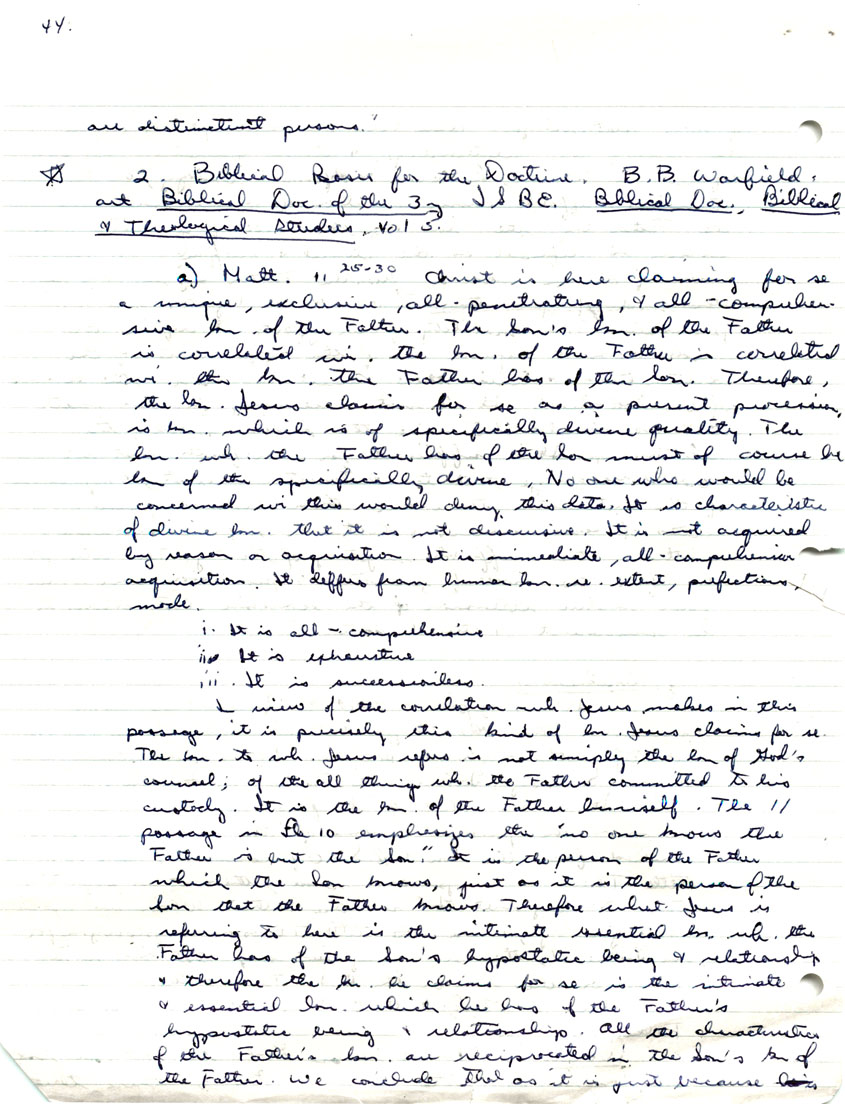 44.
are distinctint persons."
2. Biblical Basis for the Doctrine. B.B. Warfield:
art Biblical Doc. of the 3 ISBE. Biblical Doc., Biblical
& Theological Studies, vol 5.
a) Matt. 11 25-30 Christ is here claiming for se
a unique, exclusive, all-penetrating, & all-comprehen-
sive kn. of the Father. The Son's kn. of the Father
is correlated wi. the kn. of the Father is correlated
wi. the kn. the Father has of the Son. Therefore,
the kn. Jesus claims for se as a present possession,
is kn. which is of specifically divine quality. The
kn. wh. the Father has of the Son must of course be
kn of the specifically divine. No one who would be
concerned wi this would deny this data. It is characteristic
of divine kn. that it is not discursive. It is not acquired
by reason or acquisition. It is immediate, all-comprehensive
acquisition. It differs from human kn. re. extent, perfections,
mode.
i. It is all-comprehensive
ii. It is exhaustive
iii. It is successionless.
I view of the correlation wh. Jesus makes in this
passage, it is precisely this kind of kn. Jesus claims for se.
The kn. to wh. Jesus refers is not simply the kn of God's
counsel; of the all things wh. the Father committed to his
custody. It is the kn. of the Father himself. The 11
passage in Lk 10 emphasizes the "no one knows the
Father is but the Son." It is the person of the Father
which the Son knows, just as it is the person of the
Son that the Father knows. Therefore what Jesus is
referring to here is the intimate essential kn. wh. the
Father has of the Son's hypostatic being & relationship
& therefore the kn. he claims for se is the intimate
& essential kn. which he has of the Father's
hypostatic being & relationship. All the characteristics
of the Father's kn. are reciprocated in the Son's kn of
the Father. We conclude that as it is just because